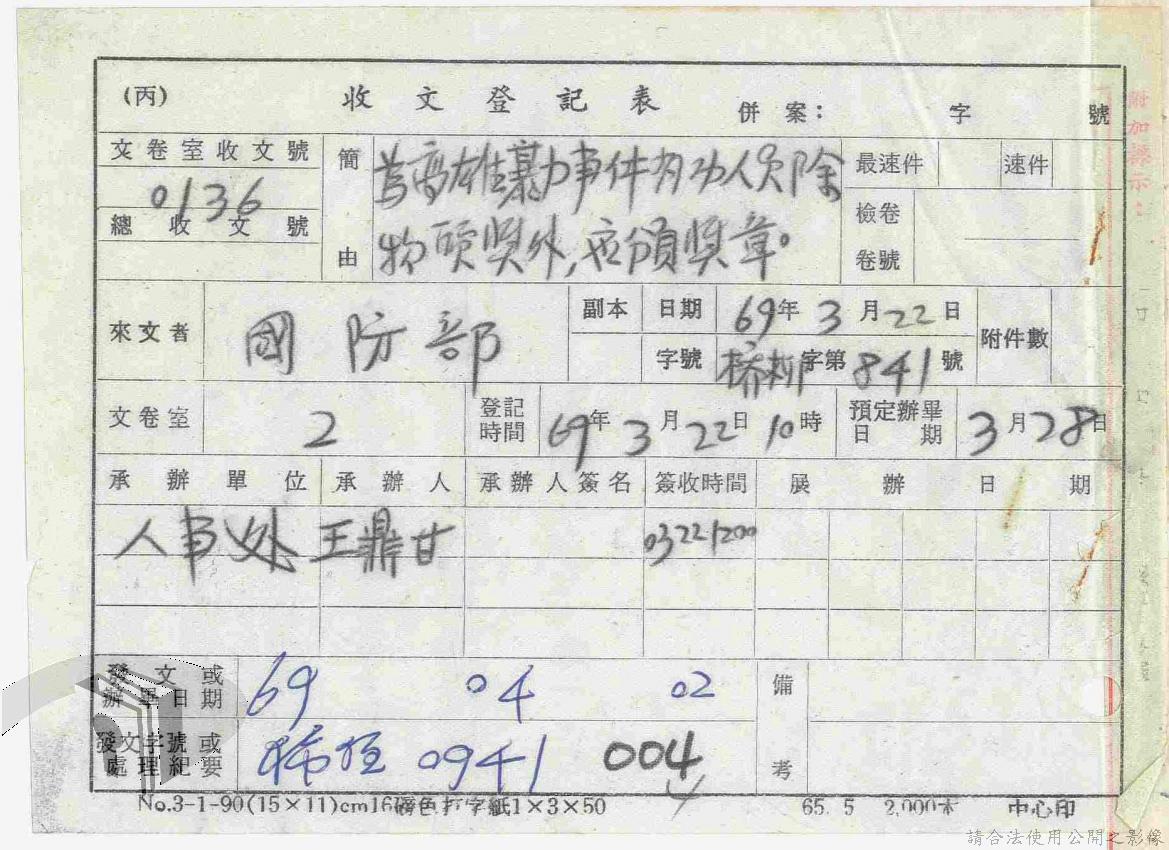 (丙) 收文登記表 併案： 字 號
附加標示：
文卷室收文號 0136
總收文號
簡由 為高雄暴力事件有功人員除
物頭獎外,應頒獎章。
最速件 速件
檢卷
卷號
來文者 國防部
副本 日期 69年3月22日
字號 字第841號
附件數
文卷室 2
登記時間 69年3月22日10時
預定辦畢日期 3月28日
承辦單位 承辦人 承辦人簽名 簽收時間 展辦日期
人事处 王鼎甘 03221200
發文或
辦畢日期 69 04 02
備考
發文字號或
處理紀要 0941 004
No.3-1-90(15×11)cm16磅色打字紙1×3×50 65.5 2,000本 中心印
請合法使用公開之影像